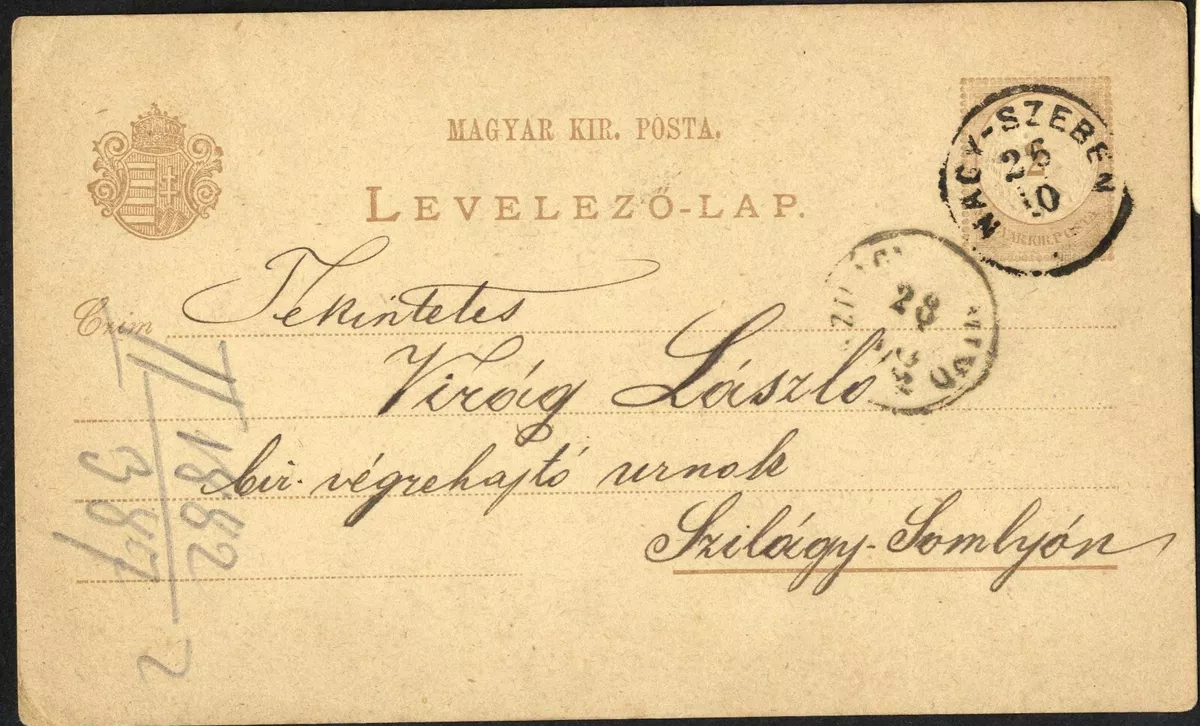 MAGYAR KIR. POSTA.
LEVELEZŐ-LAP.
NAGY-SZEBEN
25
10
2
28
Czim
Tekintetes
Virág László
bir. végrehajtó urnak
Szilágy-Somlyón
1882